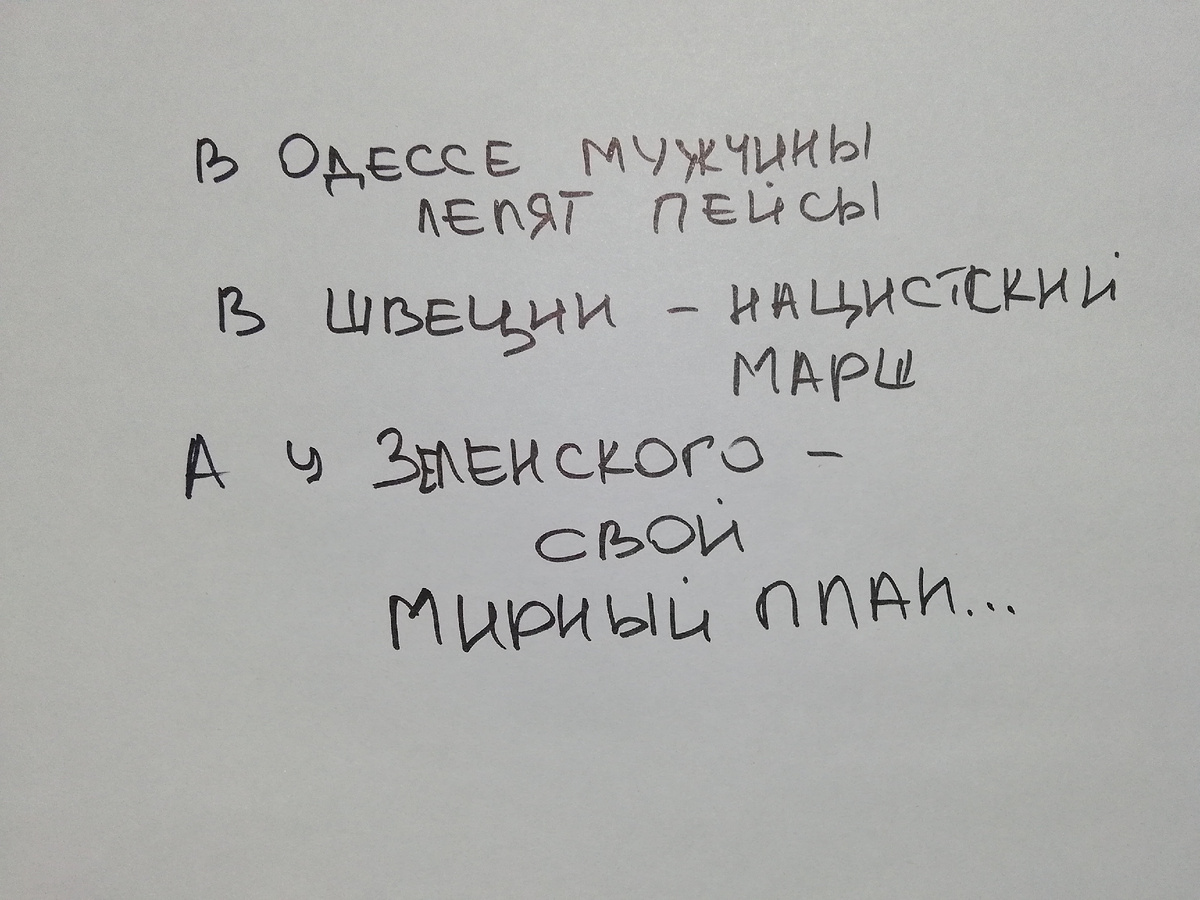 В ОДЕССЕ МУЖЧИНЫ
ЛЕПЯТ ПЕЙСЫ
В ШВЕЦИИ - НАЦИСТСКИЙ
МАРШ
А У ЗЕЛЕНСКОГО -
СВОЙ
МИРНЫЙ ПЛАН...